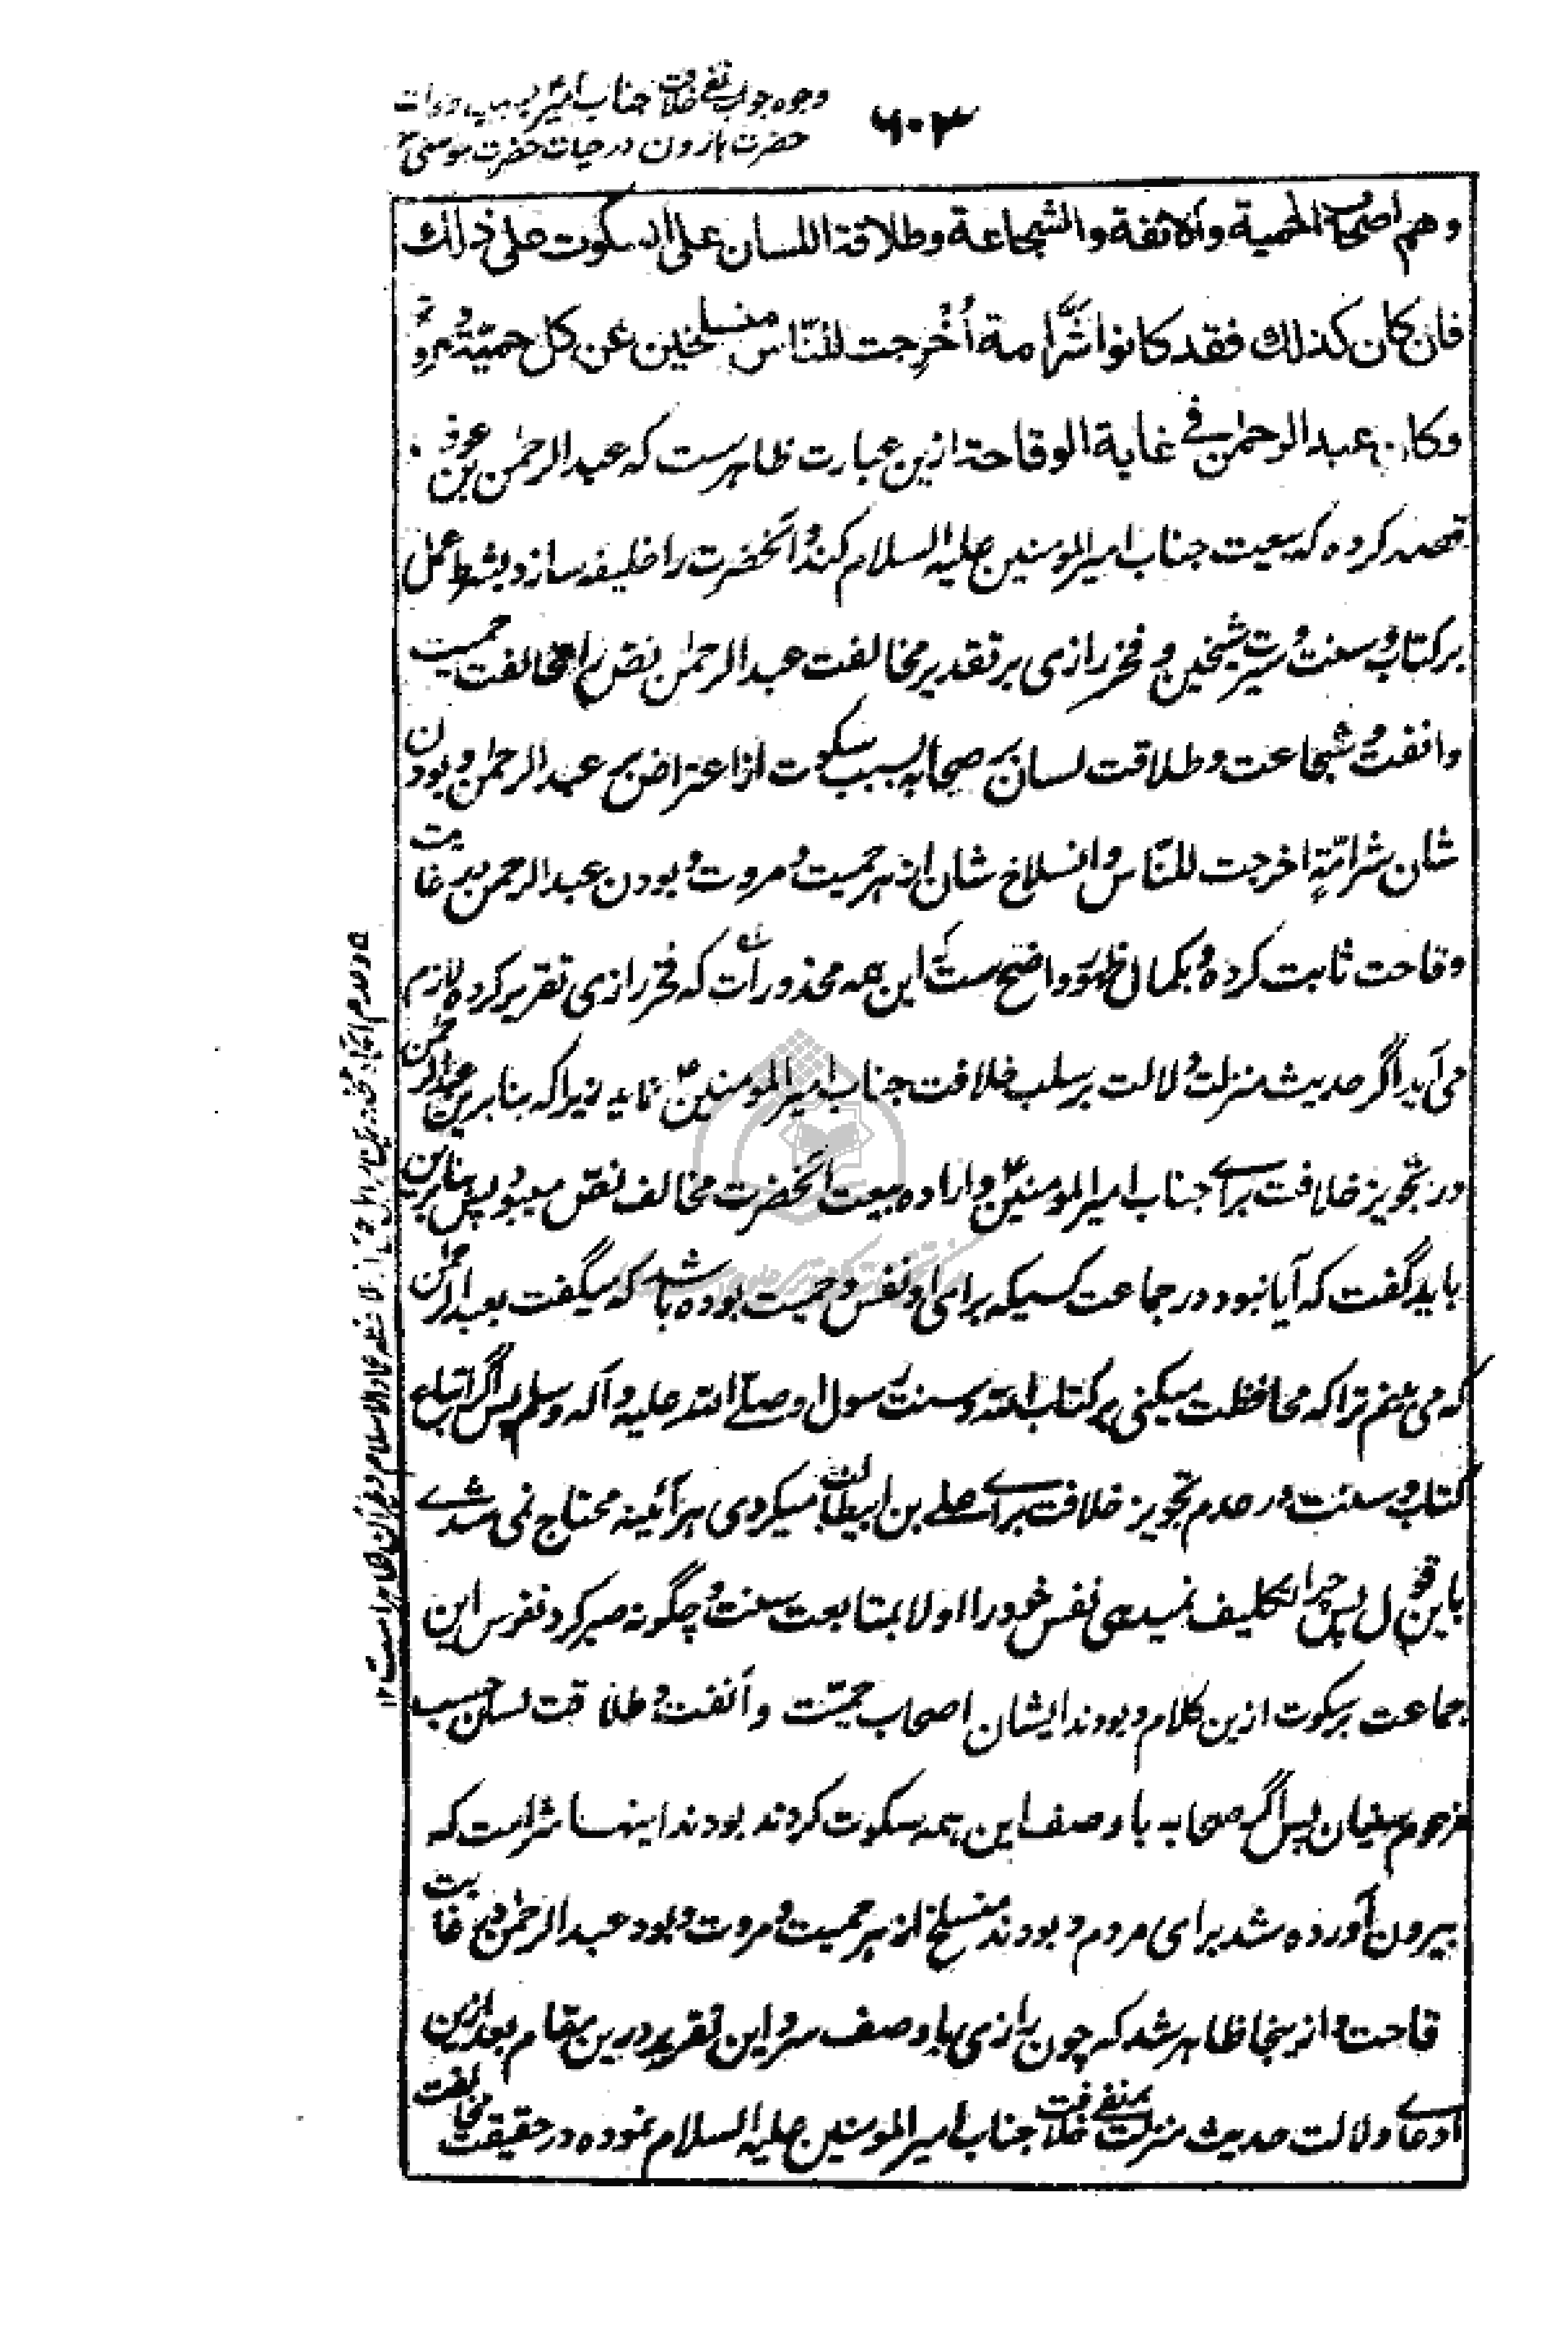 وجوه جواب نفی خلافت جناب امیرؑ بسبب وفات
حضرت هارون در حیات حضرت موسیؑ
۶۰۳
وهم اصحاب الحمیة والانفة والشجاعة وطلاقة اللسان علی السکوت علی ذلك
فان کان کذلك فقد کانوا شرّ امة اُخرِجت للنّاس منسلخین عن کل حمیّة ومروّة
وکان عبد الرحمٰن فی غایة الوقاحة ازین عبارت ظاهرست که عبد الرحمٰن بن عوف
قصد کرده که بیعت جناب امیرالمومنین علیه السلام کند و آنحضرت را خلیفه سازد بشرط عمل
بر کتاب و سنت و سیرت شیخین و فخر رازی بر تقدیر مخالفت عبد الرحمٰن نص را مخالفت حمیت
وانفت و شجاعت و طلاقت لسان بر صحابه بسبب سکوت از اعتراض بر عبد الرحمٰن و بودن
شان شر امّةٍ اخرجت للنّاس و انسلاخ شان از هر حمیت و مروت و بودن عبد الرحمن در غایت
وقاحت ثابت کرده و بکمال ظهور واضح ست که این همه محذورات که فخر رازی تقریر کرده لازم
می آید اگر حدیث منزلت دلالت بر سلب خلافت جناب امیرالمومنینؑ نماید زیرا که بنابرین عبد الرحمٰن
در تجویز خلافت برای جناب امیرالمومنینؑ و اراده بیعت آنحضرت مخالف نص میبود پس بنابرین
باید گفت که آیا نبود در جماعت کسیکه برای او نفس و حمیت بوده باشد که میگفت بعبد الرحمٰن
که می بینم ترا که محافظت میکنی بر کتاب الله و سنت رسول او صلّے الله علیه و آله وسلم پس اگر اتباع
کتاب و سنت در عدم تجویز خلافت برای علے بن ابیطالب میکردی هر آئینه محتاج نمی شدے
باین قول پس چرا تکلیف نمیدهی نفس خود را اولا بمتابعت سنت و چگونه صبر کرد نفوس این
جماعت بر سکوت ازین کلام و بودند ایشان اصحاب حمیّت و اَنفت و طلاقت لسان حسب
مزعوم سنیان پس اگر صحابه با وصف این همه سکوت کردند بودند اینها شر امت که
بیرون آورده شد برای مردم و بودند منسلخ از هر حمیت و مروت و بود عبد الرحمٰن در غایت
قاحت و ازینجا ظاهر شد که چون رازی با وصف سرد این تقریر درین مقام بعد ازین
ادعاے دلالت حدیث منزلت بنفی خلافت جناب امیرالمومنین علیه السلام نموده در حقیقت مخالفت